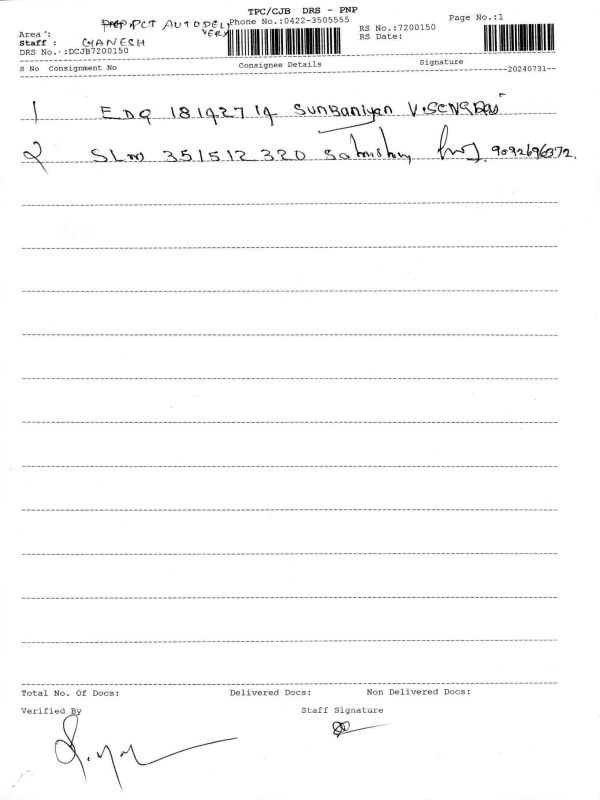 TPC/CJB DRS - PNP
PCT AUTODELIVERY Phone No.:0422-3505555 Page No.:1
Area : RS No.:7200150
Staff : GANESH RS Date:
DRS No. :DCJB7200150
S No Consignment No Consignee Details Signature
20240731
1 EDQ 181427 Sunbaniyan
2 SLM 351512320 9092696372.
Total No. Of Docs: Delivered Docs: Non Delivered Docs:
Verified By Staff Signature